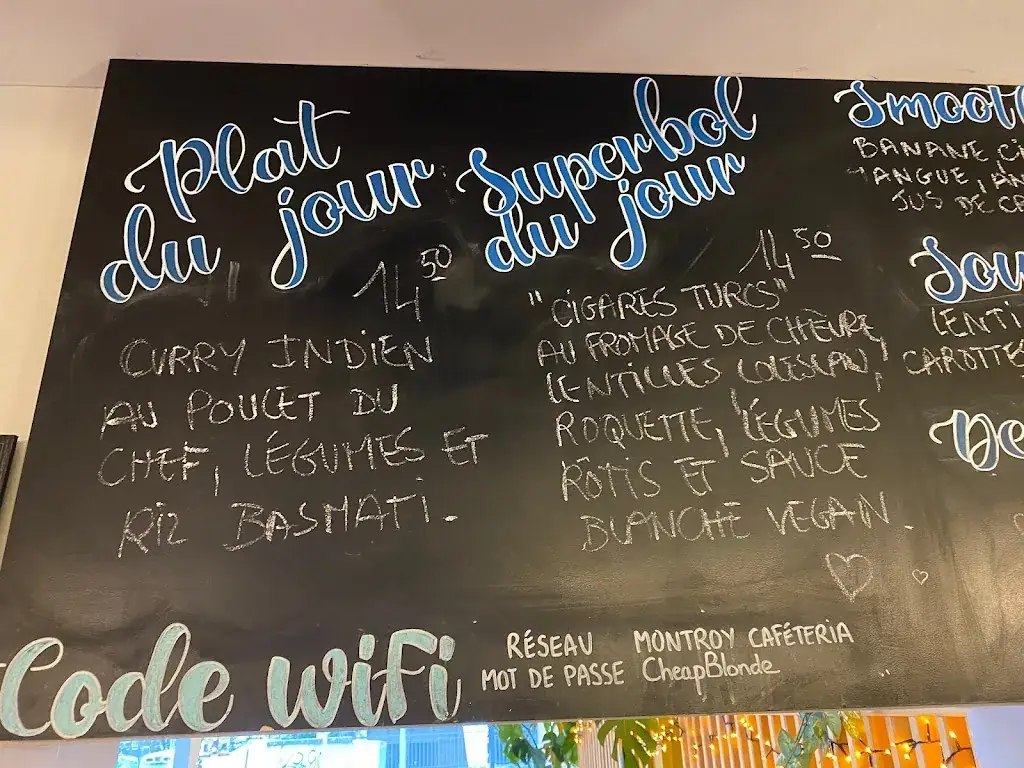 Plat
du jour
14 50
CURRY INDIEN
AU POULET DU
CHEF, LÉGUMES ET
RIZ BASMATI.
Superbol
du jour
14 50
"CIGARES TURCS"
AU FROMAGE DE CHÈVRE,
LENTILLES COLESLAW,
ROQUETTE, LÉGUMES
RÔTIS ET SAUCE
BLANCHE VEGAN.
BANANE
JUS DE
Code wiFi
RÉSEAU MONTROY CAFÉTERIA
MOT DE PASSE CheapBlonde